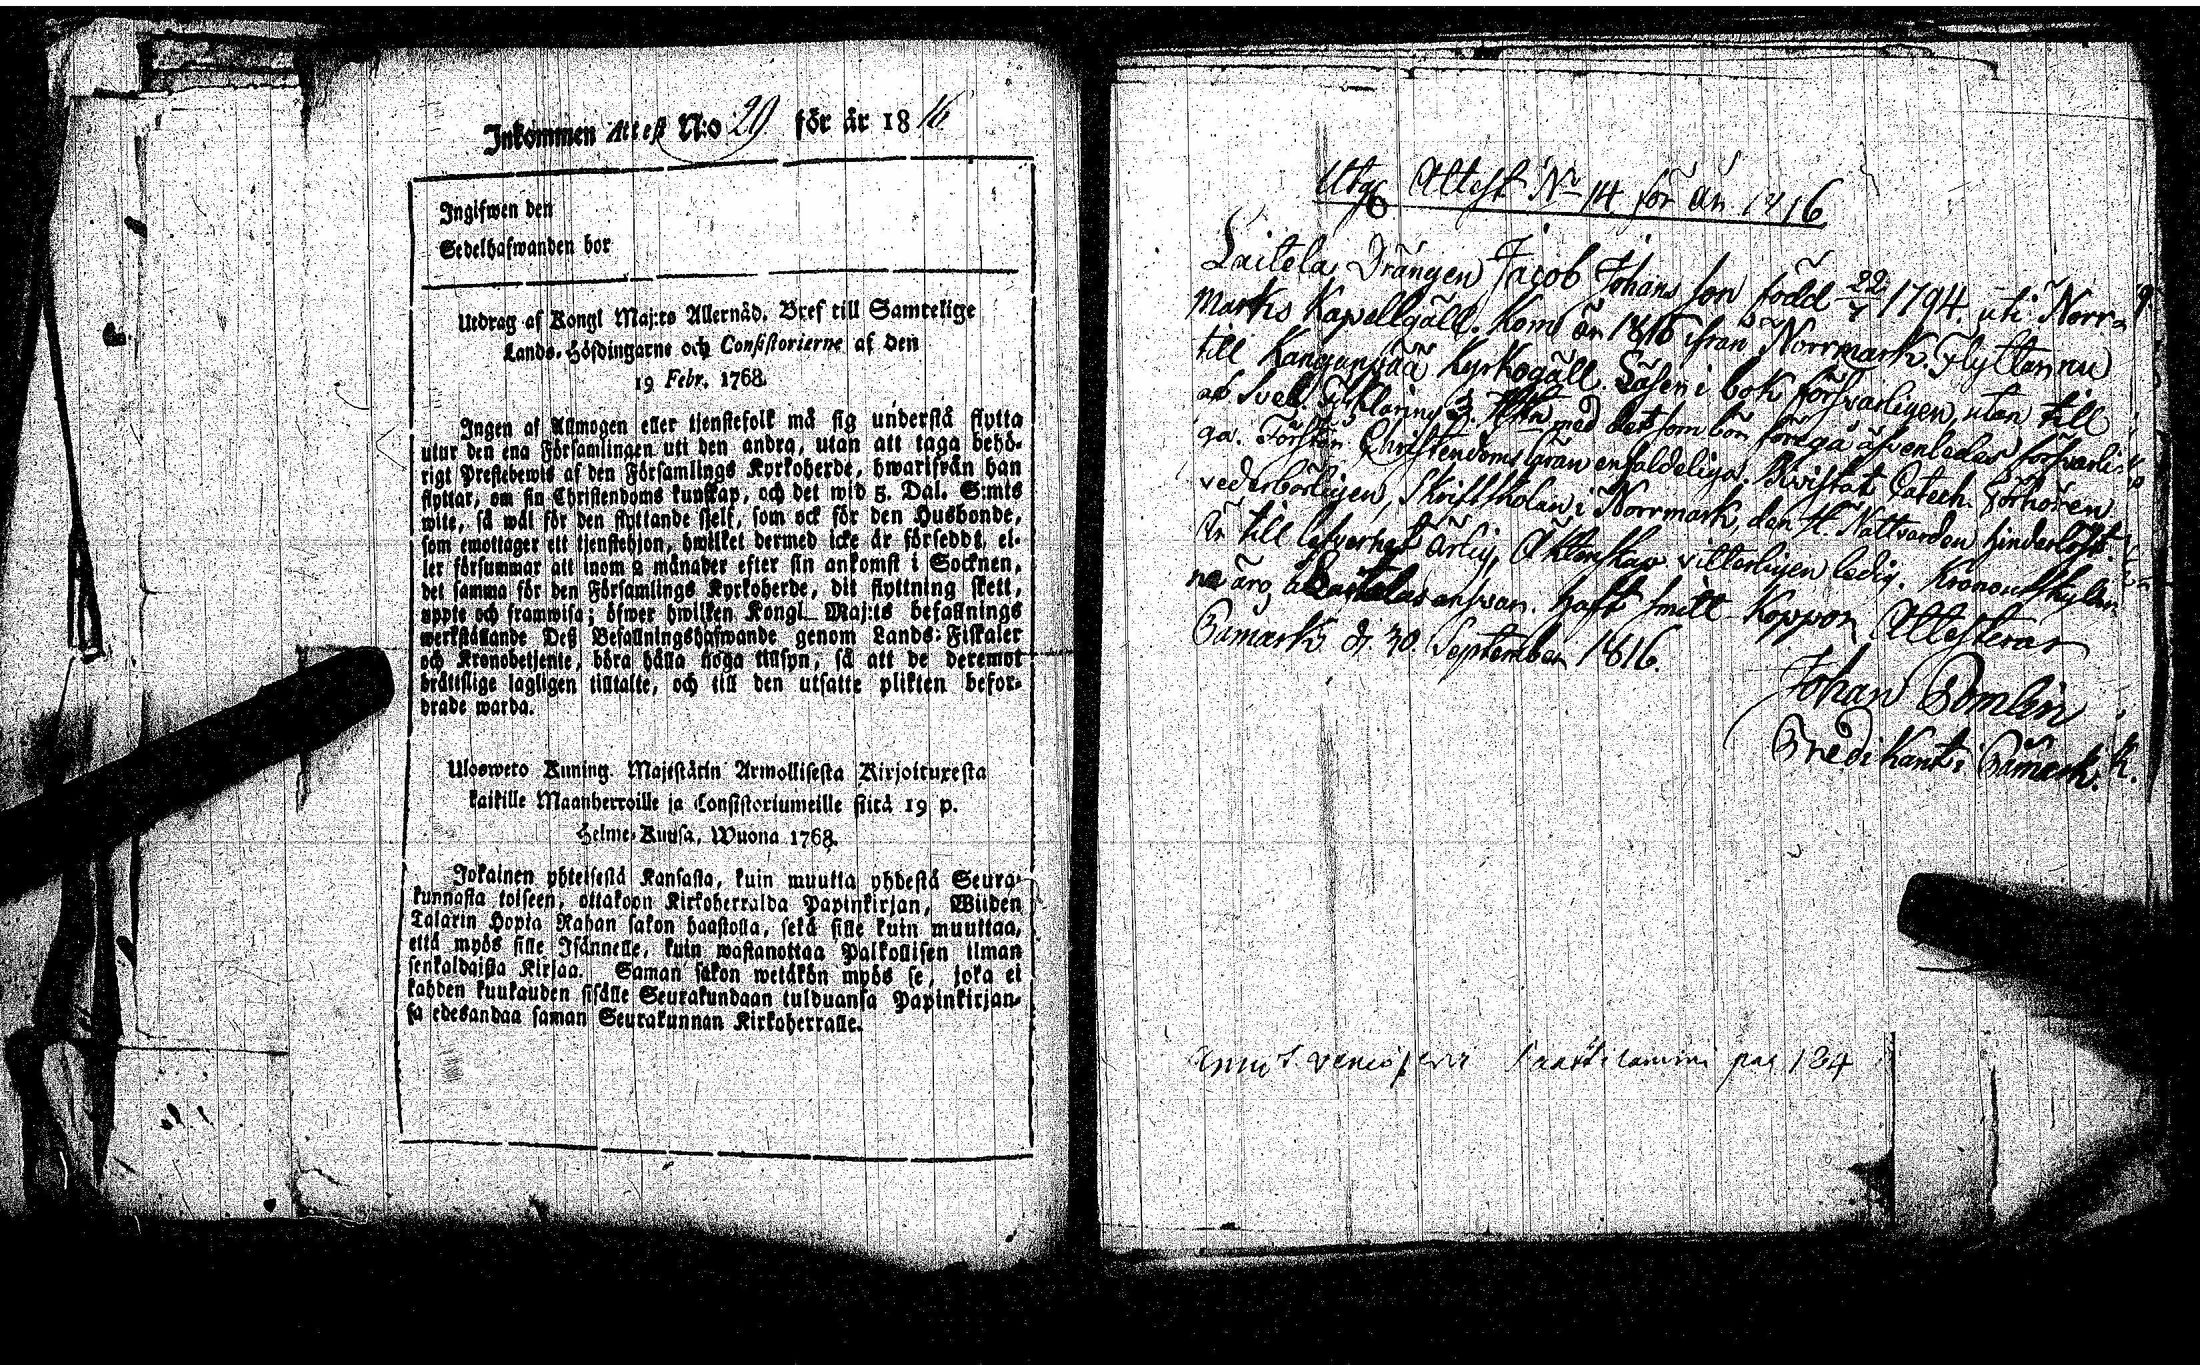 Inkommen Attest N:o 29 för år 1816
Ingifwen den
Sedelhafwanden bor
Utdrag af Kongl Maj:ts Allernåd. Bref till Samtelige
Lands-Höfdingarne och Consistorierne af den
19 Febr. 1768.
Ingen af Allmogen eller tjenstefolk må sig understå flytta
utur den ena Församlingen uti den andra, utan att taga behö-
rigt Prestebewis af den Församlings Kyrkoherde, hwarifrån han
flyttar, om sin Christendoms kunskap, och det wid 5. Dal. S:mts
wite, så wäl för den flyttande sjelf, som ock för den Husbonde,
som emottager ett tjenstehjon, hwilket dermed icke är förseddt, el-
ler försummar att inom 2 månader efter sin ankomst i Socknen,
det samma för den Församlings Kyrkoherde, dit flyttning skett,
uppte och framwisa; öfwer hwilken Kongl. Maj:ts befallnings
werkställande Deß Befallningshafwande genom Lands-Fiskaler
och Kronobetjente, böra hålla noga tillsyn, så att de deremot
bråttslige lagligen tilltalte, och till den utsatte plikten befor-
drade warda.
Ulosweto Kuning. Majestätin Armollisesta Kirjoituxesta
kaikille Maanherroille ja Consistoriumeille siitä 19 p.
Helme-Kuusa, Wuona 1768.
Jokainen yhteisestä Kansasta, kuin muutta yhdestä Seura-
kunnasta toiseen, ottakoon Kirkoherralda Papinkirjan, Wiiden
Talarin Hopia Rahan sakon haastolla, sekä sille kuin muuttaa,
että myös sille Isännelle, kuin wastanottaa Palkollisen ilman
senkaldaista Kirjaa. Saman sakon wetäkön myös se, joka ei
kahden kuukauden sisälle Seurakundaan tulduansa Papinkirjan-
sa edesandaa saman Seurakunnan Kirkoherralle.
Utg Attest No 14 för år 1816
Laitela Drängen Jacob Johans son född 22/7 1794. uti Norr-
marks Kapellgäll. Kom år 1816 ifrån Norrmark. Flyttar nu
till Kangasspää Kyrkogäll. Läser i bok försvarligen, utan till
ab Sved. med det som bör föregå äfvenledes försvarli-
ga. Förstår Christendoms läran enfaldeliga. Bevistat Catech. Förhören
vederbörligen, Skriftskolan i Norrmark, den H. Nattvarden hinderlöst.
Är till lefvernet Ärlig, Äktenskap vitterligen ledig. Kronoutskylder-
na äro å Laitelas ansvar. haft smitt Koppor Attesterar
Påmark d. 30. September 1816.
Johan Pomlin
Predikant i Påmark.
pag 134